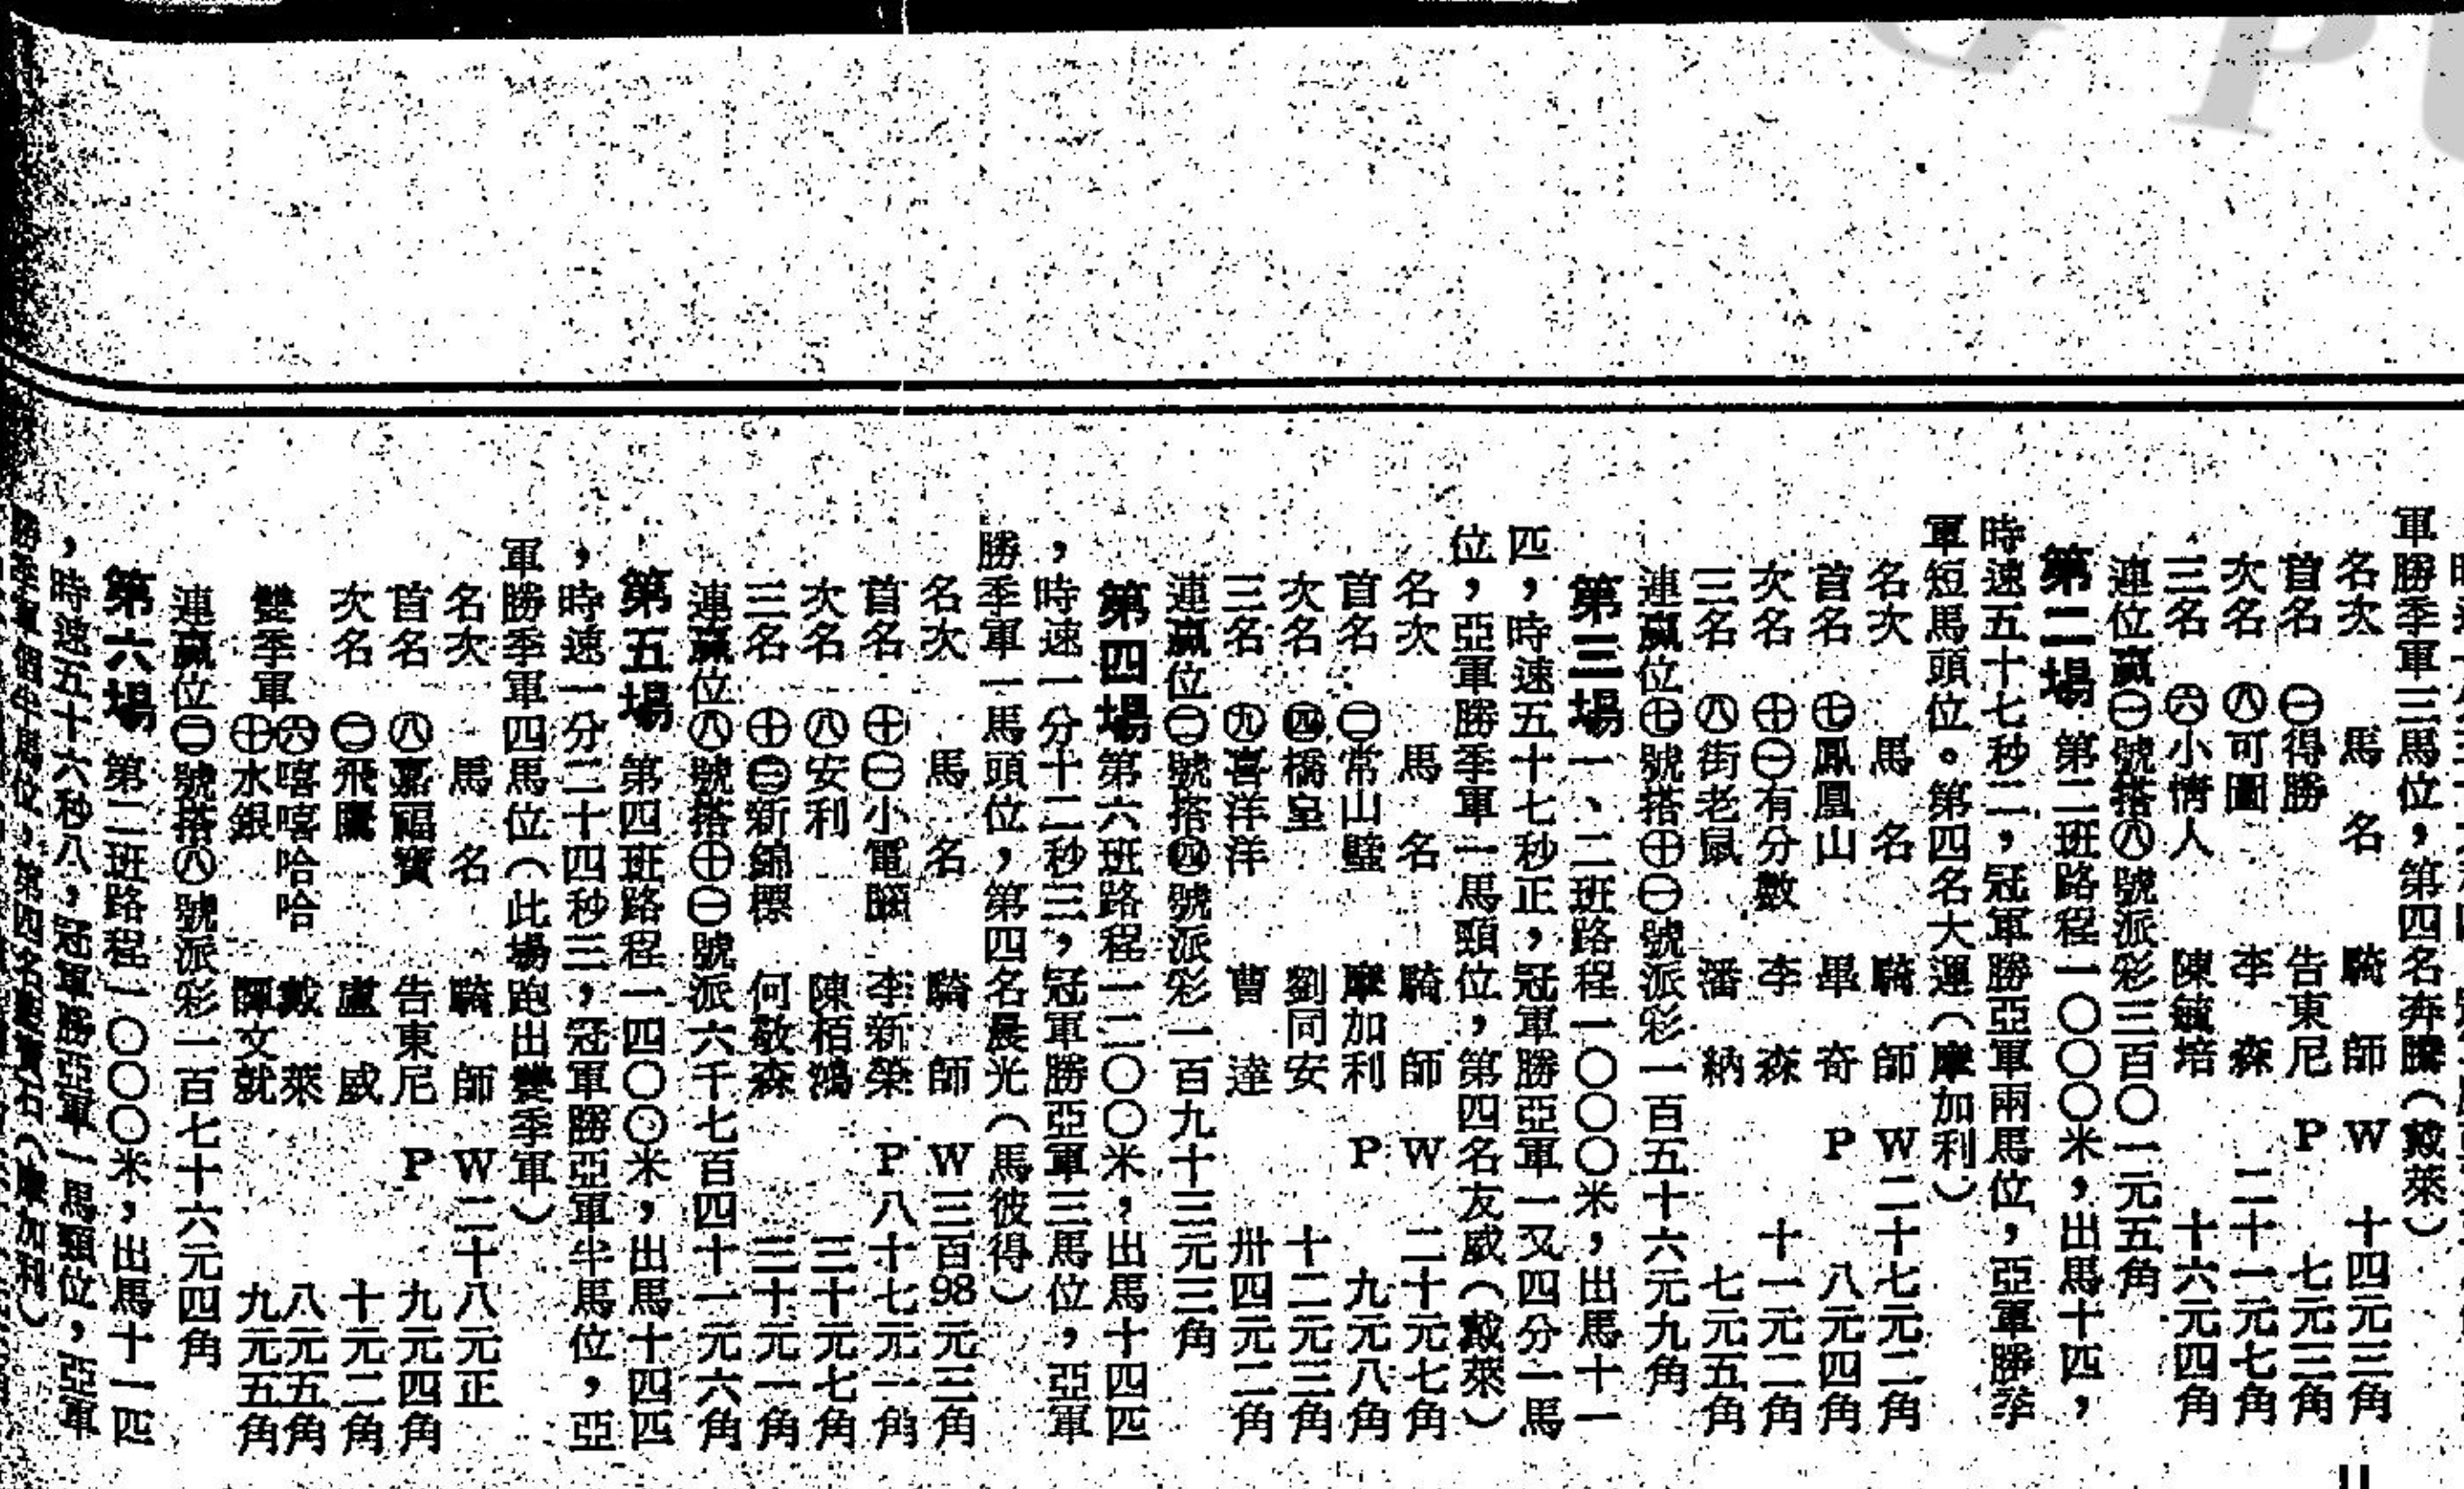 軍勝季軍三馬位，第四名奔騰（戴萊）
名次　馬名　騎師　W　十四元三角
首名　㊀得勝　告東尼　P　七元三角
次名　㊇可圖　李森　二十一元七角
三名　㊅小情人　陳毓培　十六元四角
連位贏㊀號搭㊇號派彩三百〇一元五角
第二場　第二班路程一〇〇〇米，出馬十四，
時速五十七秒二，冠軍勝亞軍兩馬位，亞軍勝季
軍短馬頭位。第四名大運（摩加利）
名次　馬名　騎師　W二十七元二角
首名　㊆鳳凰山　畢奇　P　八元四角
次名　㊉㊀有分數　李森　十一元二角
三名　㊇街老鼠　潘納　七元五角
連贏位㊆號搭㊉㊀號派彩一百五十六元九角
第三場　一、二班路程一〇〇〇米，出馬十一
匹，時速五十七秒正，冠軍勝亞軍一又四分一馬
位，亞軍勝季軍一馬頸位，第四名友威（戴萊）
名次　馬名　騎師　W　二十元七角
首名　㊁常山璧　摩加利　P　九元八角
次名　㊃橋皇　劉同安　十二元三角
三名　㊈喜洋洋　曹達　卅四元二角
連贏位㊁號搭㊃號派彩一百九十三元三角
第四場　第六班路程一二〇〇米，出馬十四匹
，時速一分十二秒三，冠軍勝亞軍三馬位，亞軍
勝季軍一馬頭位，第四名晨光（馬彼得）
名次　馬名　騎師　W三百98元三角
首名　㊉㊀小電腦　李新榮　P八十七元一角
次名　㊇安利　陳栢鴻　三十元七角
三名　㊉㊂新錦標　何敬森　三十元一角
連贏位㊇號搭㊉㊀號派六千七百四十一元六角
第五場　第四班路程一四〇〇米，出馬十四匹
，時速一分二十四秒三，冠軍勝亞軍半馬位，亞
軍勝季軍四馬位（此場跑出雙季軍）
名次　馬名　騎師　W二十八元正
首名　㊇嘉福寶　告東尼　P　九元四角
次名　㊁飛鷹　盧威　十元二角
雙季軍　㊅嘻嘻哈哈　戴萊　八元五角
㊉水銀　譚文就　九元五角
連贏位㊁號搭㊇號派彩一百七十六元四角
第六場　第二班路程一〇〇〇米，出馬十一匹
，時速五十六秒八，冠軍勝亞軍一馬頸位，亞軍
勝季軍個半馬位，第四名寶石（摩加利）